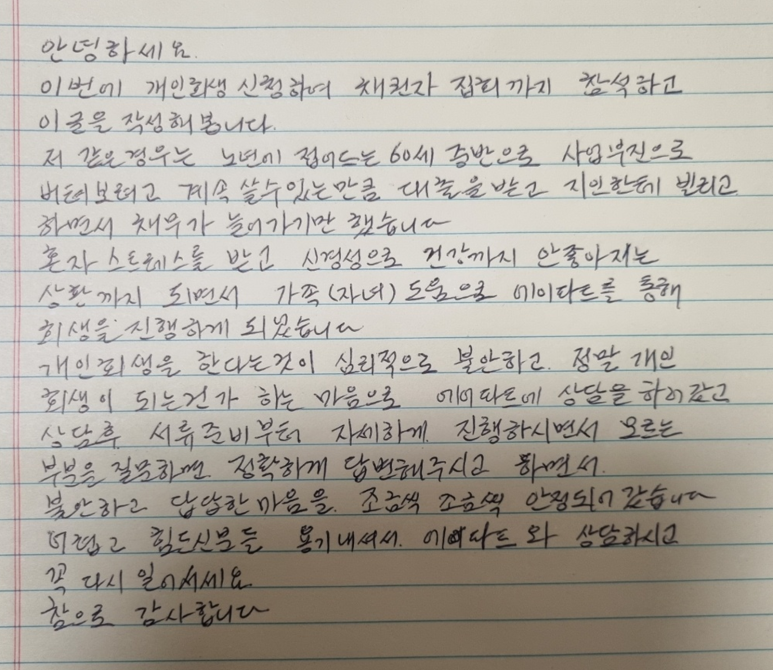 안녕하세요.
이번에 개인회생 신청하여 채권자 집회까지 참석하고
이글을 작성해 봅니다.
저 같은경우는 노년에 접어드는 60세 중반으로 사업부진으로
버텨보려고 계속 살수있는만큼 대출을받고 지인한테 빌리고
하면서 채무가 늘어가기만 했습니다
혼자 스트레스를 받고 신경성으로 건강까지 안좋아지는
상황까지 되면서 가족(자녀)도움으로 에이파트를 통해
회생을 진행하게 되었습니다
개인회생을 한다는것이 심리적으로 불안하고. 정말 개인
회생이 되는건가 하는 마음으로 에이파트에 상담을 하러갔고
상담후 서류준비부터 자세하게 진행하시면서 모르는
부분을 질문하면. 정확하게 답변해주시고 하면서.
불안하고 답답한마음을. 조금씩 조금씩 안정되어 갔습니다
어렵고 힘드신분들 용기내셔서. 에이파트와 상담하시고
꼭 다시 일어서세요
참으로 감사합니다